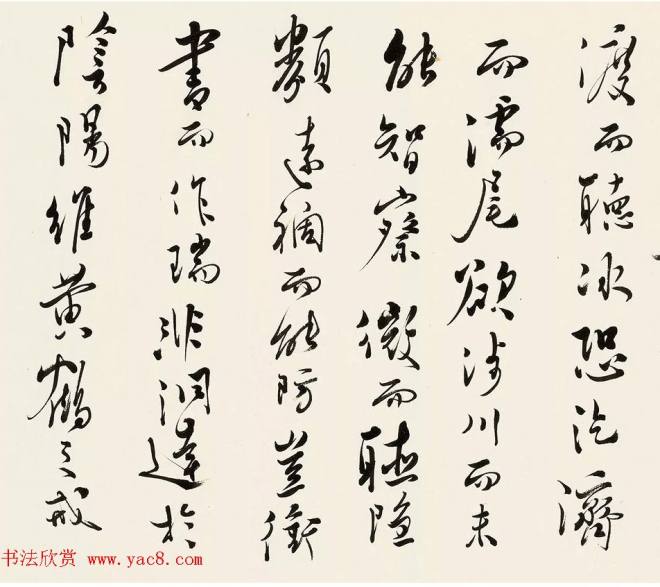 渡而聽冰恐汔濟
而濡尾欲涉川而未
能智察微而聽隐
類遠禍而能防豈銜
書而作瑞非洞達於
陰陽維黄鶴之戒
书法欣赏 www.yac8.com